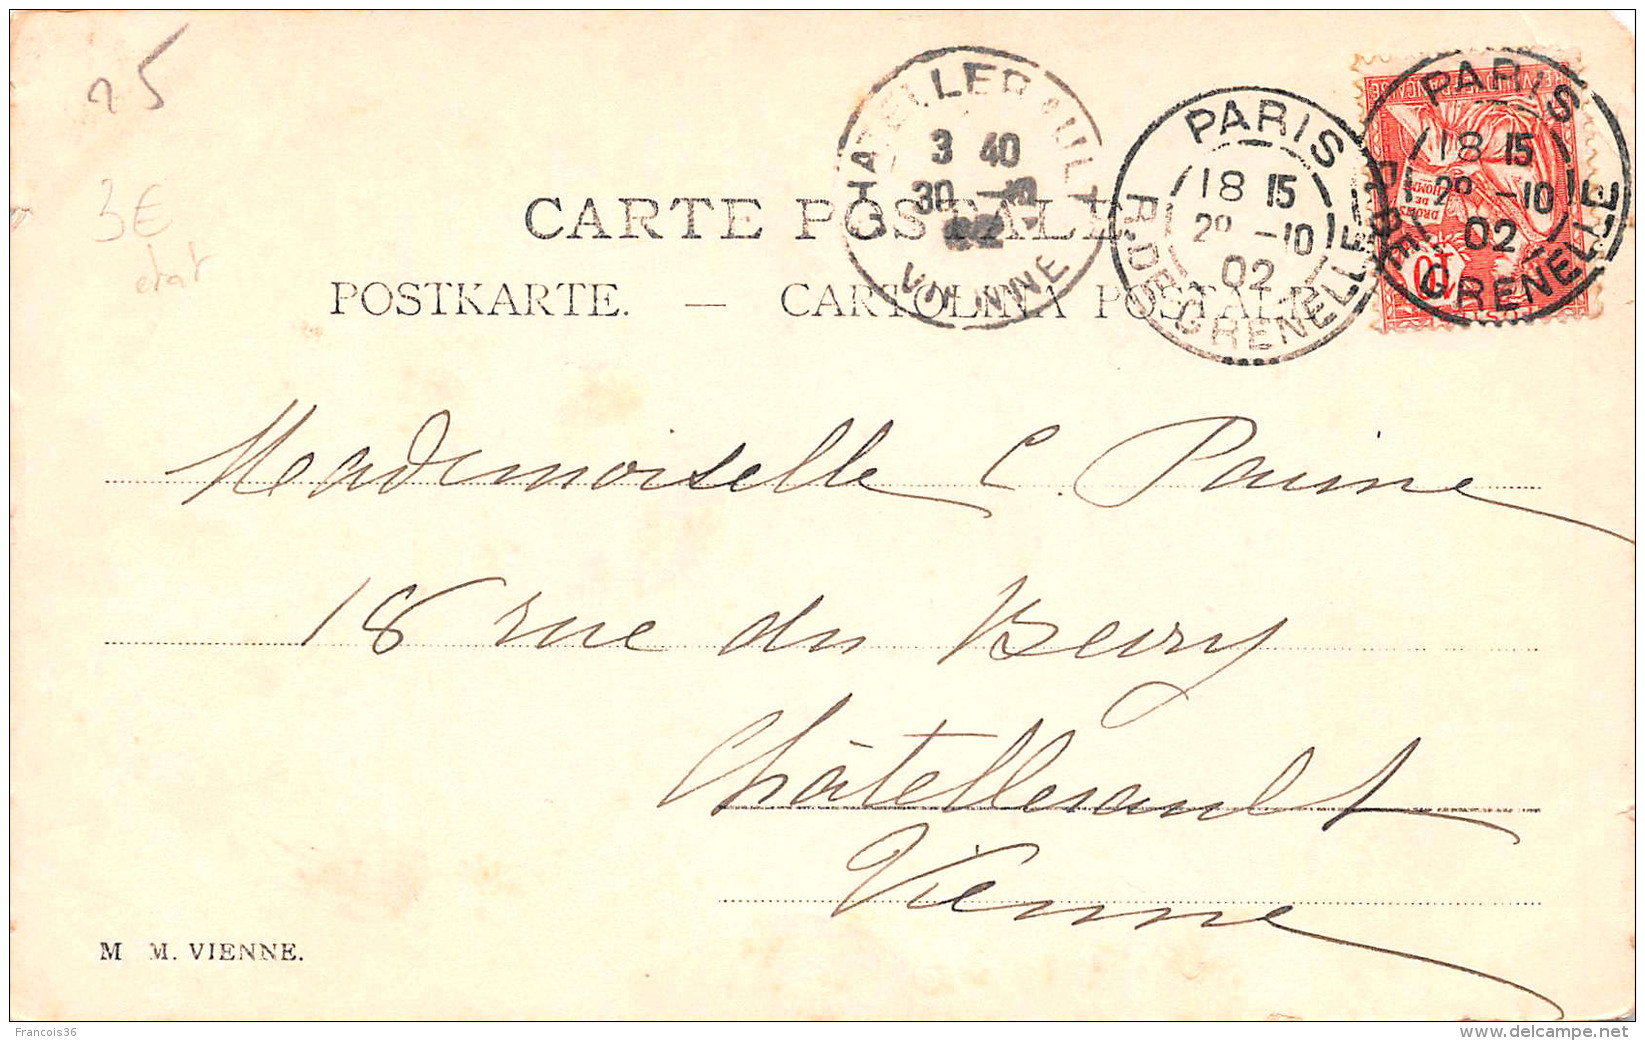 25
3€
etat
CHATELLERAULT
3 40
30 -10
02
VIENNE
PARIS
18 15
29 -10
02
R. DE GRENELLE
PARIS
18 15
29 -10
02
R. DE GRENELLE
DROITS DE L'HOMME
10
CARTE POSTALE
POSTKARTE. — CARTOLINA POSTALE
Mademoiselle C. Paume
18 rue du Berry
Châtellerault
Vienne
M M. VIENNE.
Francois36
www.delcampe.net